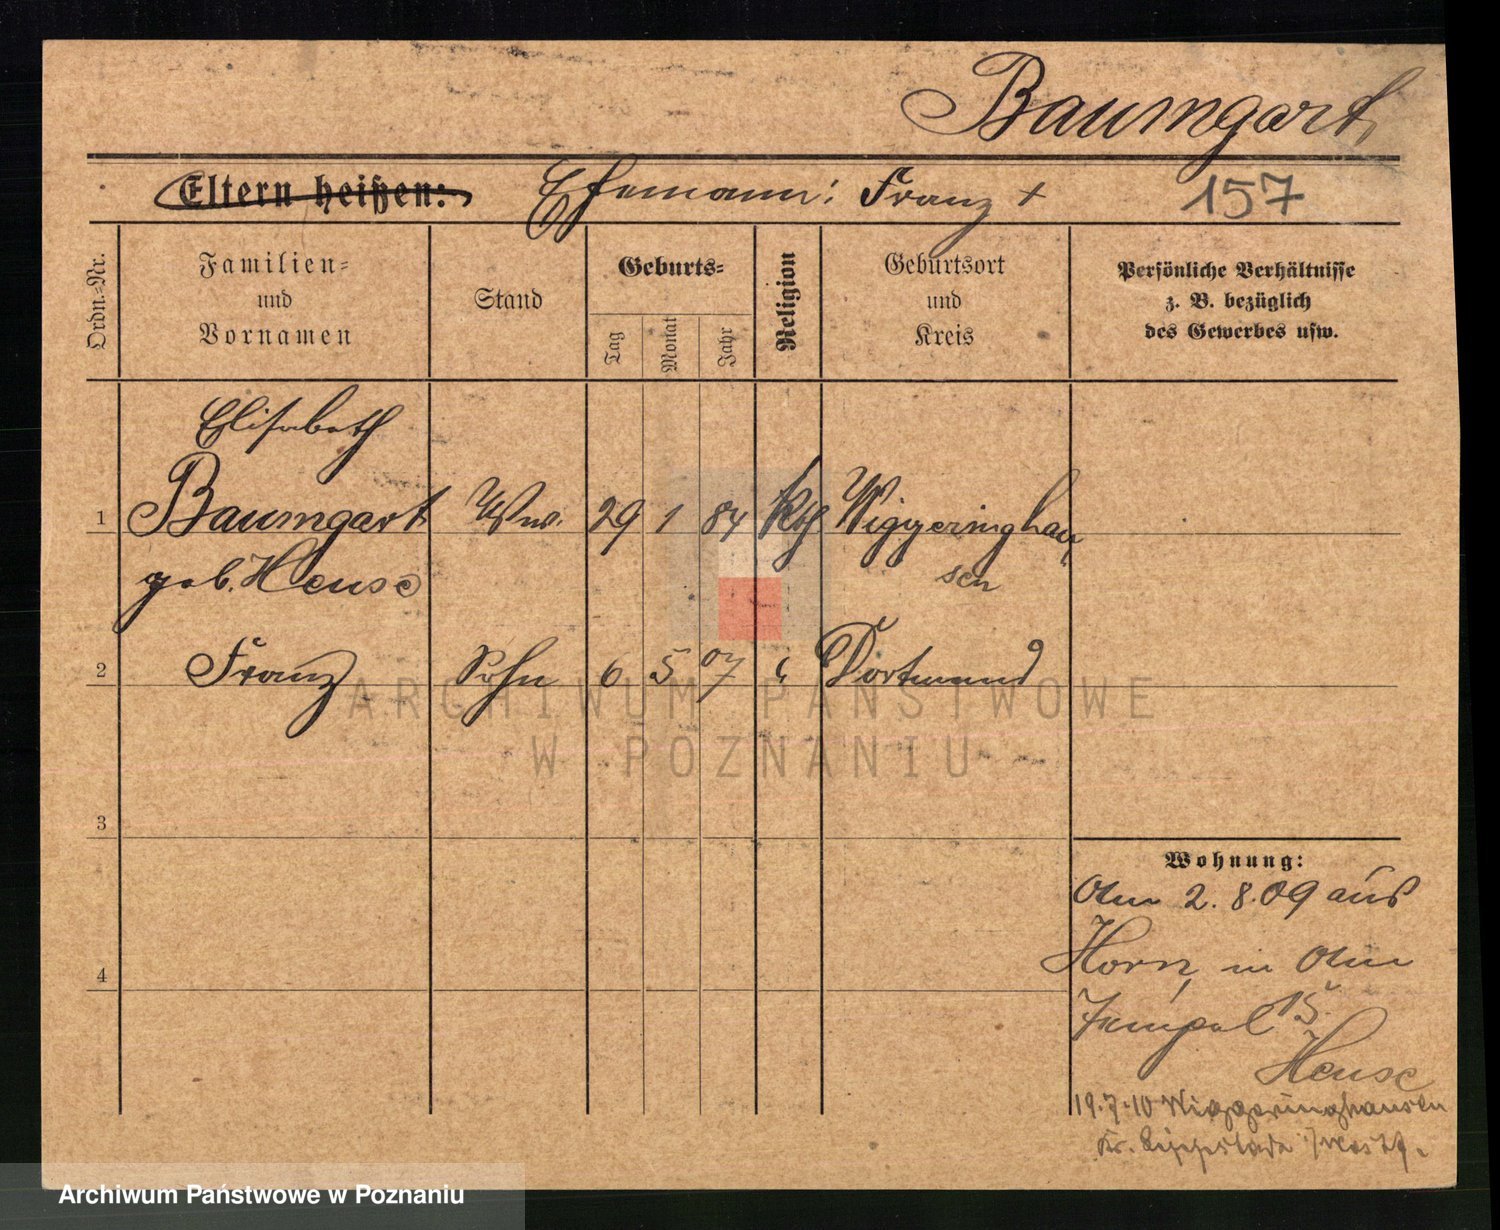 Baumgart,
Eltern heißen: Ehemann: Franz + 157
Ordn.-Nr.
Familien-
und
Vornamen
Stand
Geburts-
Tag
Monat
Jahr
Religion
Geburtsort
und
Kreis
Persönliche Verhältnisse
z. B. bezüglich
des Gewerbes usw.
Elisabeth
1 Baumgart Ww. 29 1 84 Kth Wiggeringhau
geb. Heuse sen
2 Franz Sohn 6 5 07 " Dortmund
3
4
Wohnung:
2. 8. 09 aus
Horn, in
15.
Heuse
19.7.10 Wiggeringhausen
Kr. Lippstadt i/Westf.
ARCHIWUM PAŃSTWOWE
W POZNANIU
Archiwum Państwowe w Poznaniu